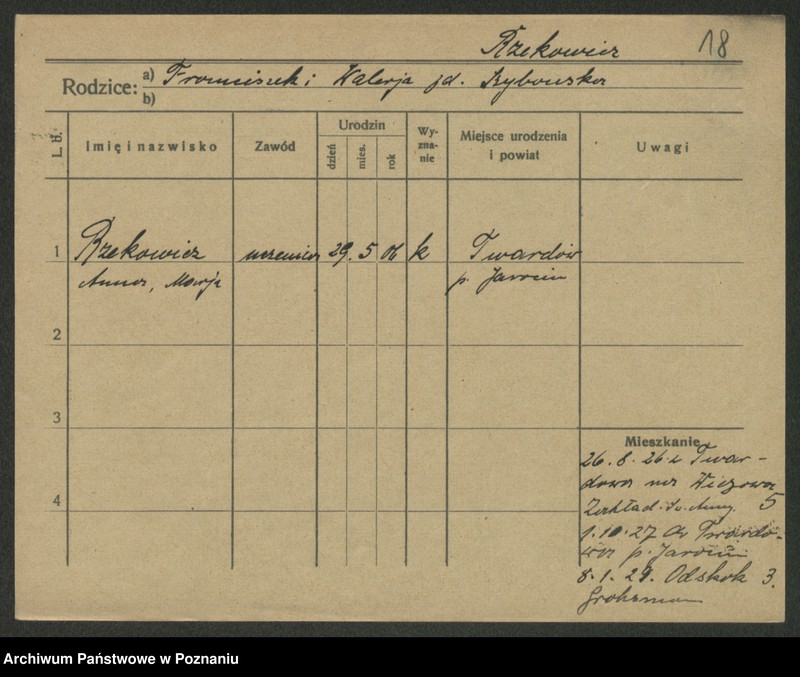 Rzekowicz 18
Rodzice: a) Franciszek i Walerja zd. Rybowska
b)
L. B. Imię i nazwisko Zawód Urodzin dzień mies. rok Wy-zna-nie Miejsce urodzenia i powiat Uwagi
1 Rzekowicz uczenica 29. 5 06 k Twardów
Anna, Marja p. Jarocin
2
3
Mieszkanie
26. 8. 26 z Twar-
dowa na
4 Zakład. Św. Anny. 5
1. 10. 27 do Twardo-
wa p. Jarocin
8. 1. 29. Odskok 3.
Archiwum Państwowe w Poznaniu